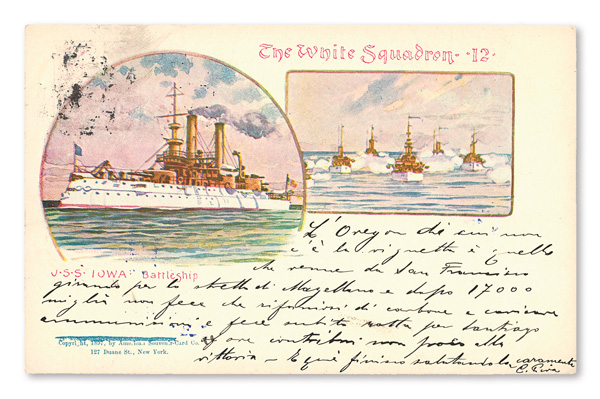 The White Squadron - 12 -
L'Oregon di cui non
c'è la vignetta è quello
che venne da San Francisco
U·S·S· IOWA· Battleship
girando per lo stretto di Magellano e dopo 17000
miglia non fece che rifornirsi di carbone e caricare
ammunizioni e fece subito rotta per Santiago
ove contribuì non poco alla
Copyright, 1897, by American Souvenir-Card Co.
127 Duane St., New York.
vittoria – E qui finisco salutandola caramente